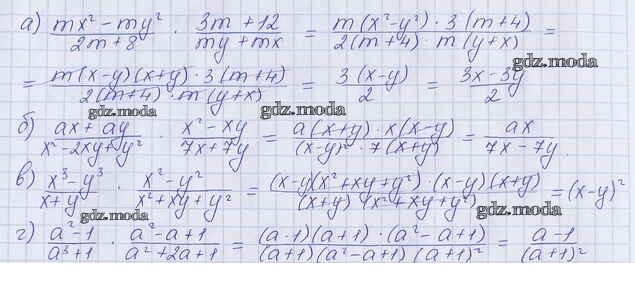 а) (mx² − my²)/(2m + 8) · (3m + 12)/(my + mx) = (m(x² − y²) · 3(m + 4))/(2(m + 4) · m(y + x)) =
gdz.moda
= (m(x − y)(x + y) · 3(m + 4))/(2(m + 4) · m(y + x)) = (3(x − y))/2 = (3x − 3y)/2
gdz.moda gdz.moda
б) (ax + ay)/(x² − 2xy + y²) · (x² − xy)/(7x + 7y) = (a(x + y) · x(x − y))/((x − y)² · 7(x + y)) = ax/(7x − 7y).
в) (x³ − y³)/(x + y) · (x² − y²)/(x² + xy + y²) = ((x − y)(x² + xy + y²) · (x − y)(x + y))/((x + y) (x² + xy + y²)) = (x − y)²
gdz.moda gdz.moda
г) (a² − 1)/(a³ + 1) · (a² − a + 1)/(a² + 2a + 1) = ((a − 1)(a + 1) · (a² − a + 1))/((a + 1)(a² − a + 1)(a + 1)²) = (a − 1)/(a + 1)²